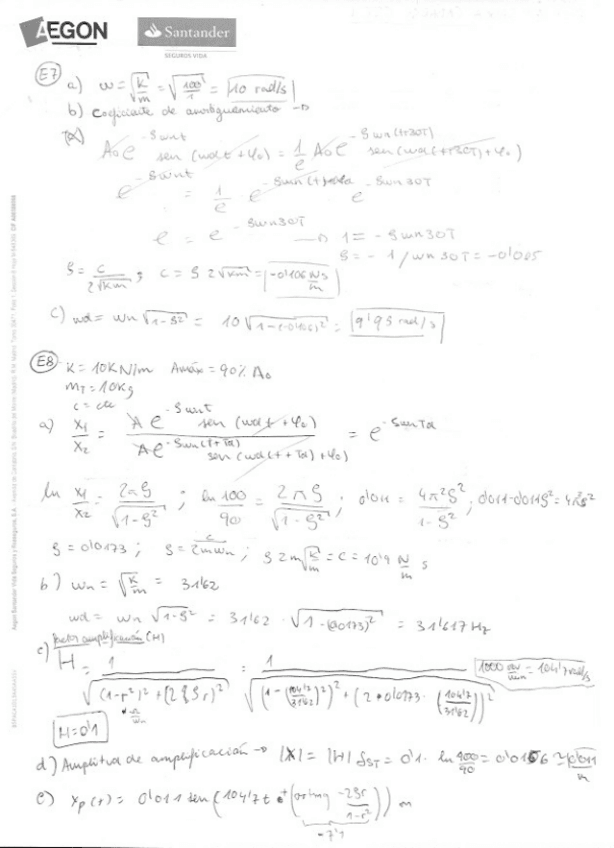 AEGON Santander
SEGUROS VIDA
E7 a) ω = √(k/m) = √(100/1) = 10 rad/s
b) Coeficiente de amortiguamiento →
A₀e^(-ζωnt) sen(ωdt + φ₀) = 1/e A₀e^(-ζωn(t+30T)) sen(ωd(t+30T)+φ₀)
e^(-ζωnt) = 1/e · e^(-ζωn(t) e^(-ζωn30T)
e = e^(-ζωn30T) → 1 = -ζωn30T
ζ = -1/ωn30T = -0'005
ζ = c/(2√km) ; c = ζ 2√km = -0'106 Ns/m
c) ωd = ωn √(1-ζ²) = 10 √(1-(-0'106)²) = 9'95 rad/s
E8 K = 10KN/m Amáx = 90% A₀
m_T = 10Kg
c = cte
a) x₁/x₂ = Ae^(-ζωnt) sen(ωdt+φ₀) / Ae^(-ζωn(t+Td)) sen(ωd(t+Td)+φ₀) = e^(-ζωnTd)
ln x₁/x₂ = 2πζ/√(1-ζ²) ; ln 100/90 = 2πζ/√(1-ζ²) ; 0'011 = 4π²ζ²/(1-ζ²) ; 0'011-0'011ζ² = 4π²ζ²
ζ = 0'0173 ; ζ = c/(2mωn) ; ζ2m√(k/m) = c = 10'9 N/m s
b) ωn = √(k/m) = 31'62
ωd = ωn √(1-ζ²) = 31'62 · √(1-(0'0173)²) = 31'617 Hz
c) factor amplificación (H)
H = 1/√((1-r²)²+(2ζr)²) = 1/√((1-(104'7/31'62)²)²+(2*0'0173·(104'7/31'62))²) 1000 = 104'7 rad/s
H = 0'1
d) Amplitud de amplificación → |X| = |H| δST = 0'1 · ln 100/90 = 0'0106 ≈ 0'011 m
e) xp(t) = 0'011 sen(104'7t + (-2ζr/(1-r²))) m
-7'1
Aegon Santander Vida Seguros y Reaseguros, S.A.